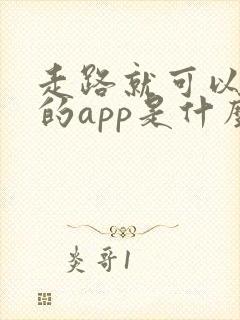 走路就可以
的app是什么
炎哥1